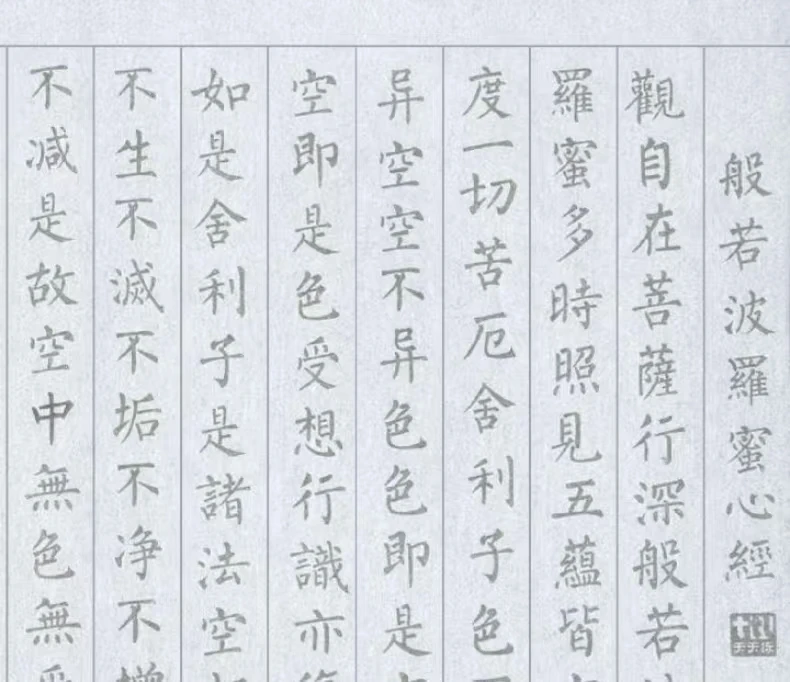 般若波羅蜜心經
觀自在菩薩行深般若
羅蜜多時照見五蘊皆
度一切苦厄舍利子色
异空空不异色色即是
空即是色受想行識亦
如是舍利子是諸法空
不生不滅不垢不净不
不减是故空中無色無